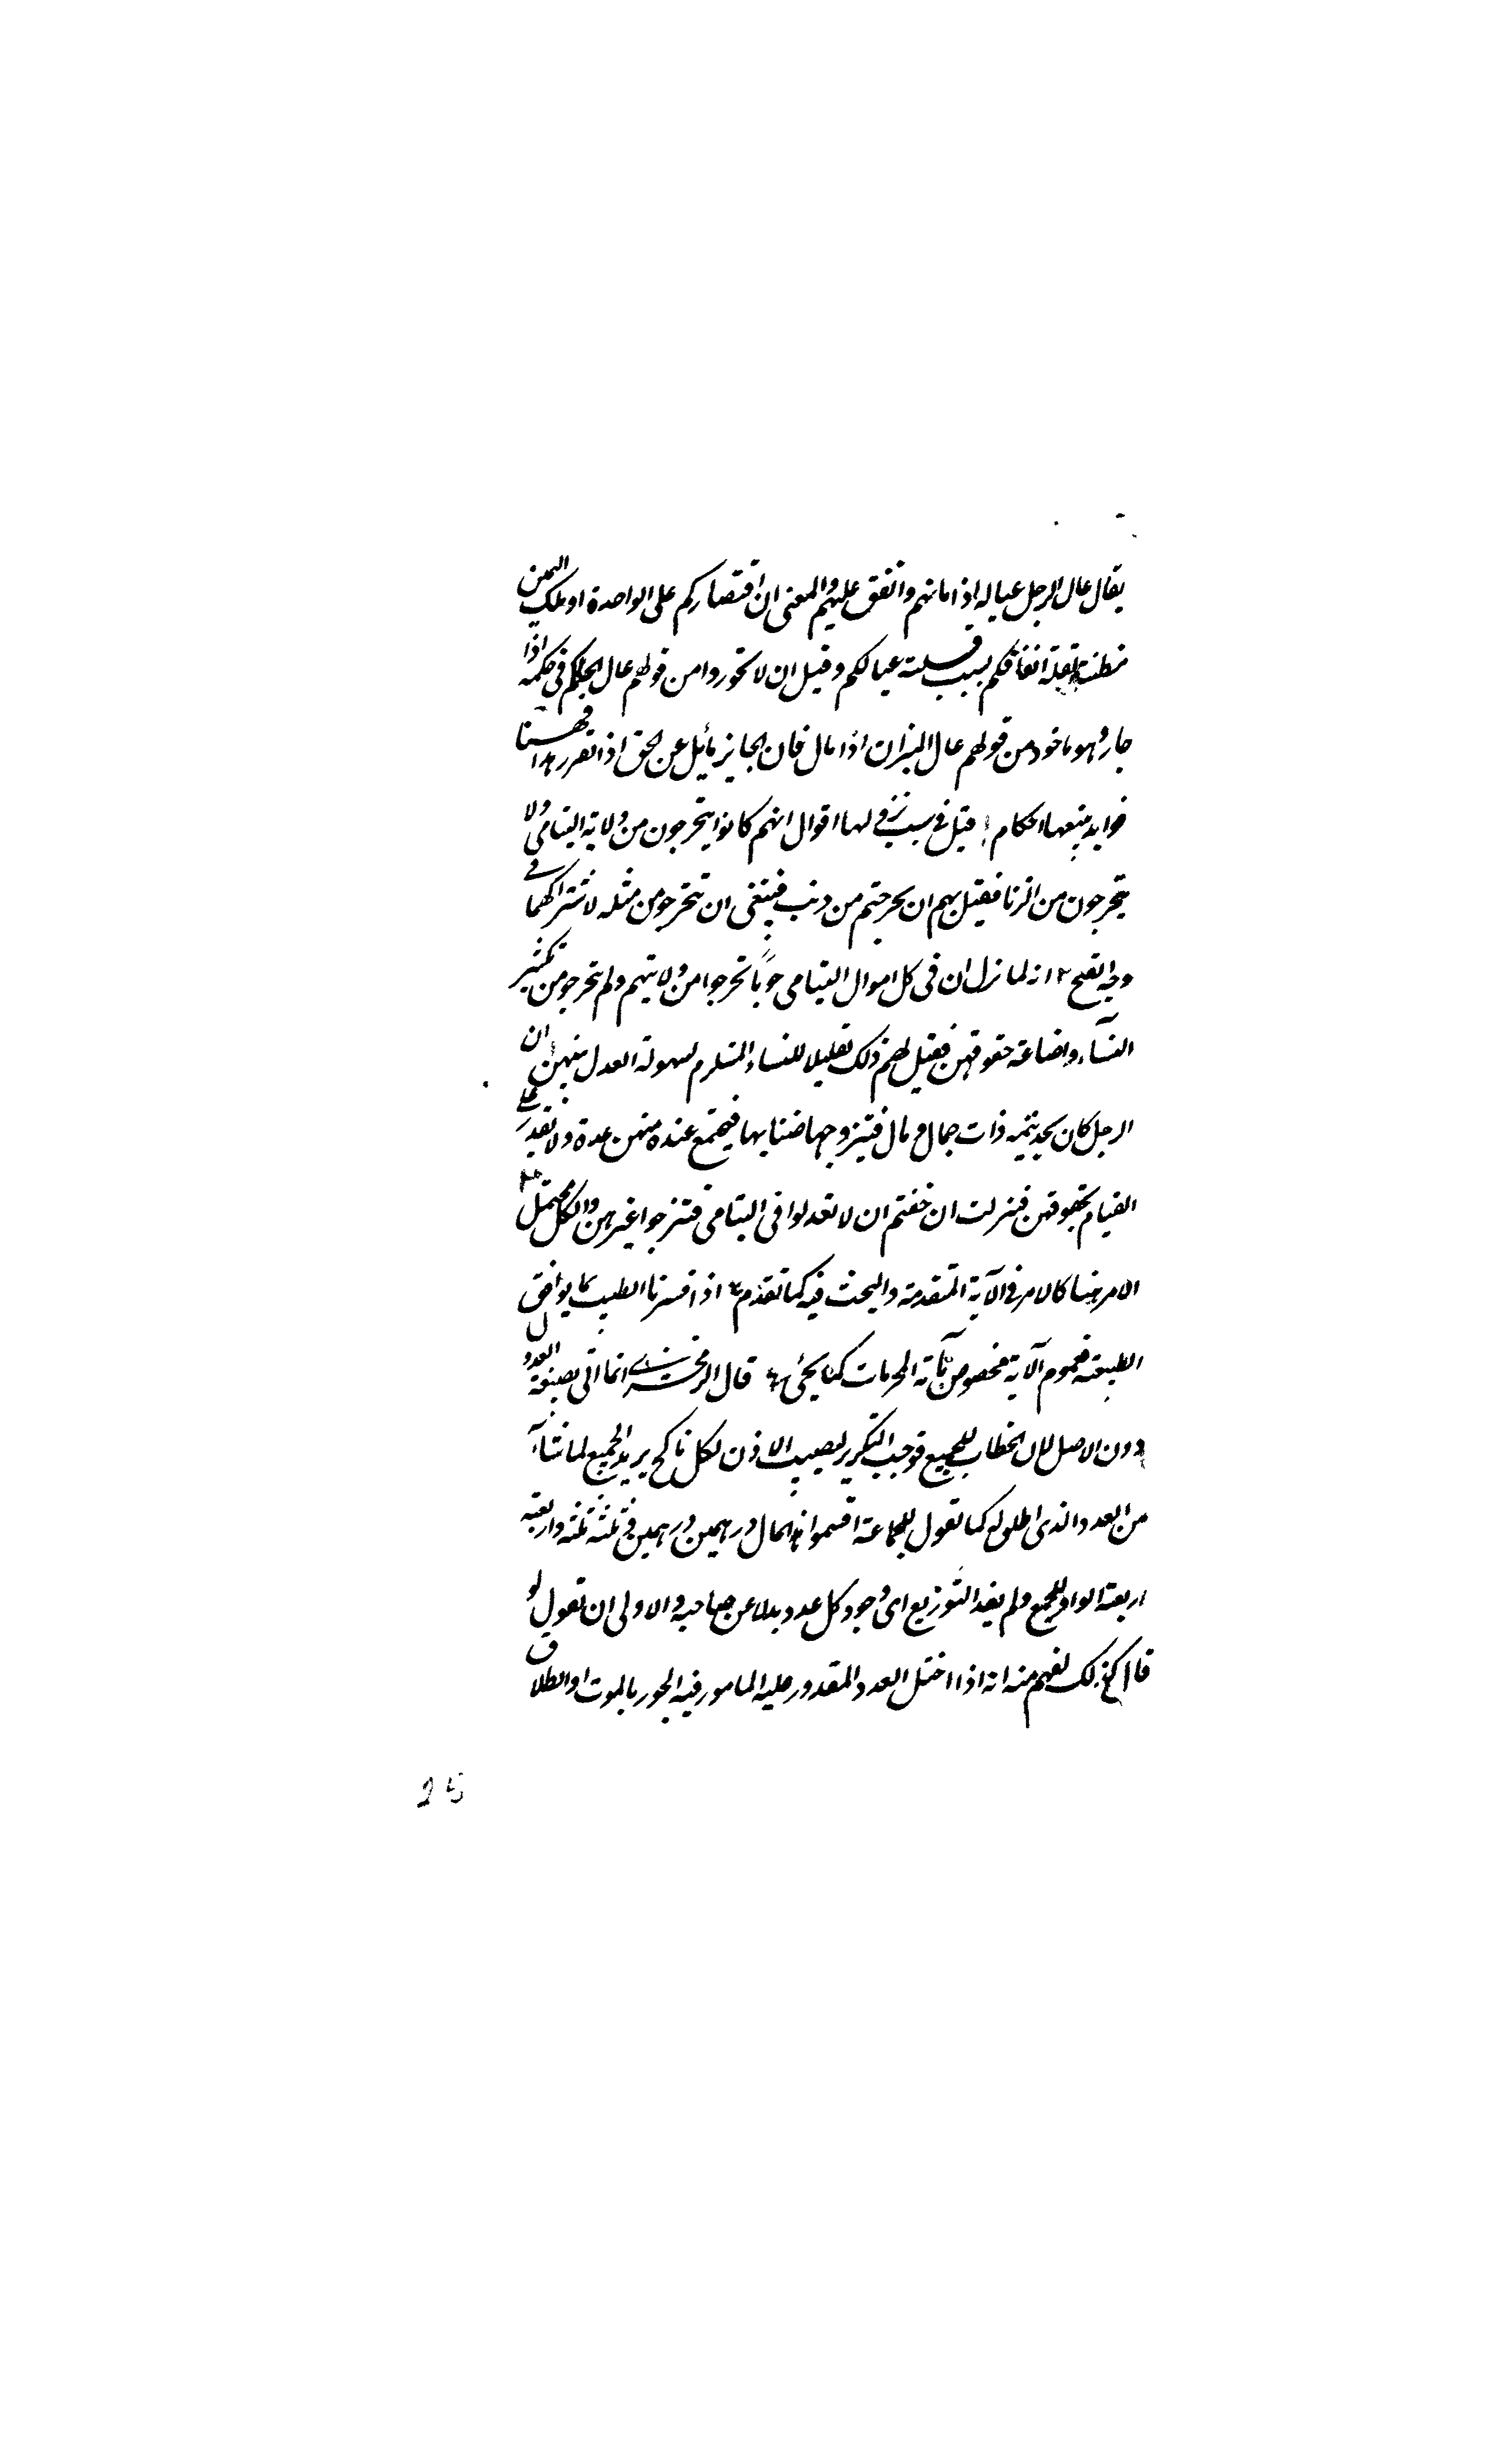 يقال عال الرجل عياله اذا مانهم وانفق عليهم والمعنى ان اقتصاركم على الواحدة او ملك اليمن
مظنة لقلة انفاقكم بسبب قلة عيالكم وقيل ان لا تجوروا من قولهم عال الحاكم فى حكمه اذا
جار وهو ماخوذ من قولهم عال الميزان اذا مال فان الجاير مائل عن الحق اذا تقرر هذا فهنا
فوايد يتبعها احكام ا قيل فى سبب نزولها اقوال انهم كانوا يتحرجون من ولاية اليتامى ولا
يتحرجون من الزنا فقيل لهم ان تحرجتم من ذنب فينبغى ان تتحرجو من مثله لاشتراكهما فى
وجه القبح ٢ انه لما نزل ان فى كل اموال اليتامى حوبًا تحرجوا من ولايتهم ولم يتحرجو من تكثير
النسآء واضاعة حقوقهن فقيل لهم ذلك تقليلا للنساء المستلزم لسهولة العدل بينهن ان
الرجل كان يجد يتيمه ذات جمال ومال فيتزوجها ضنا بها فيجتمع عنده منهن عدة ولا يقدر على
القيام بحقوقهن فنزلت ان خفتم ان لا تعدلوا فى اليتامى فتزوجوا غيرهن والكل محتمل ٣
الامر هنا كالامر فى الآية المتقدمة والبحث فيه كما تقدم ٤ اذا فسرنا الطيب بما يوافق
الطبيعة فعموم الآية مخصوص بآية المحرمات كما يجئ قال الزمخشرى انما اتى بصيغة العدول
دون الاصل لان الخطاب للجميع فوجب التكرير ليصيب الاذن لكل ناكح يريد الجميع لما شآء
من العدد الذى اطلق له كما تقول للجماعة اقسموا هذا المال درهمين درهمين وثلثة ثلثه واربعة
اربعة الواو للجمع ولم يفد التوزيع اى وجود كل عدد بدلا عن صاحبه والاولى ان تقول لو
قال كذلك لفهم منه انه اذا اختل العدد المقدور عليه المامور فيه الجور بالموت او الطلاق
25